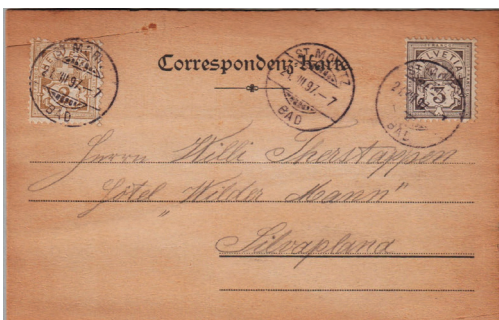 Correspondenz-Karte
ST. MORITZ
21. VIII 97.-7
BAD
HELVETIA
3
Herrn Willi Therstappen
Hôtel "Wilder Mann"
Silvaplana